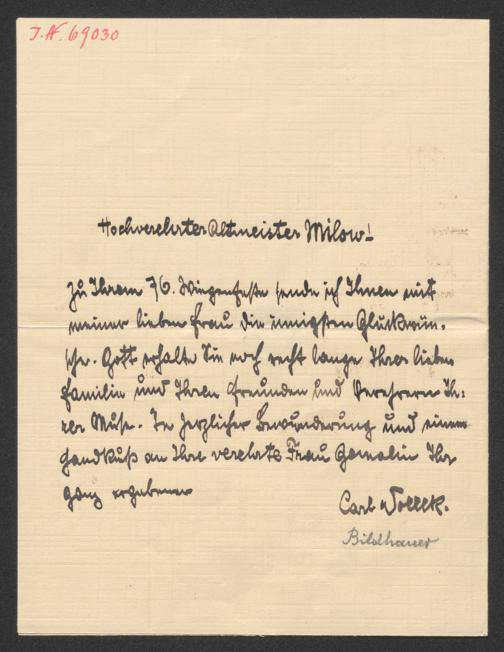 I.N. 69030
Hochverehrter Altmeister Milow!
Zu Ihrem 76. Wiegenfeste sende ich Ihnen mit
meiner lieben Frau die innigsten Glückwün-
sche. Gott erhalte Sie noch recht lange Ihrer lieben
Familie und Ihren Freunden und Verehrern Ih-
rer Muse. In herzlicher Bewunderung und einem
Handkuß an Ihre verehrte Frau Gemalin Ihr
ganz ergebener
Carl Wollek.
Bildhauer